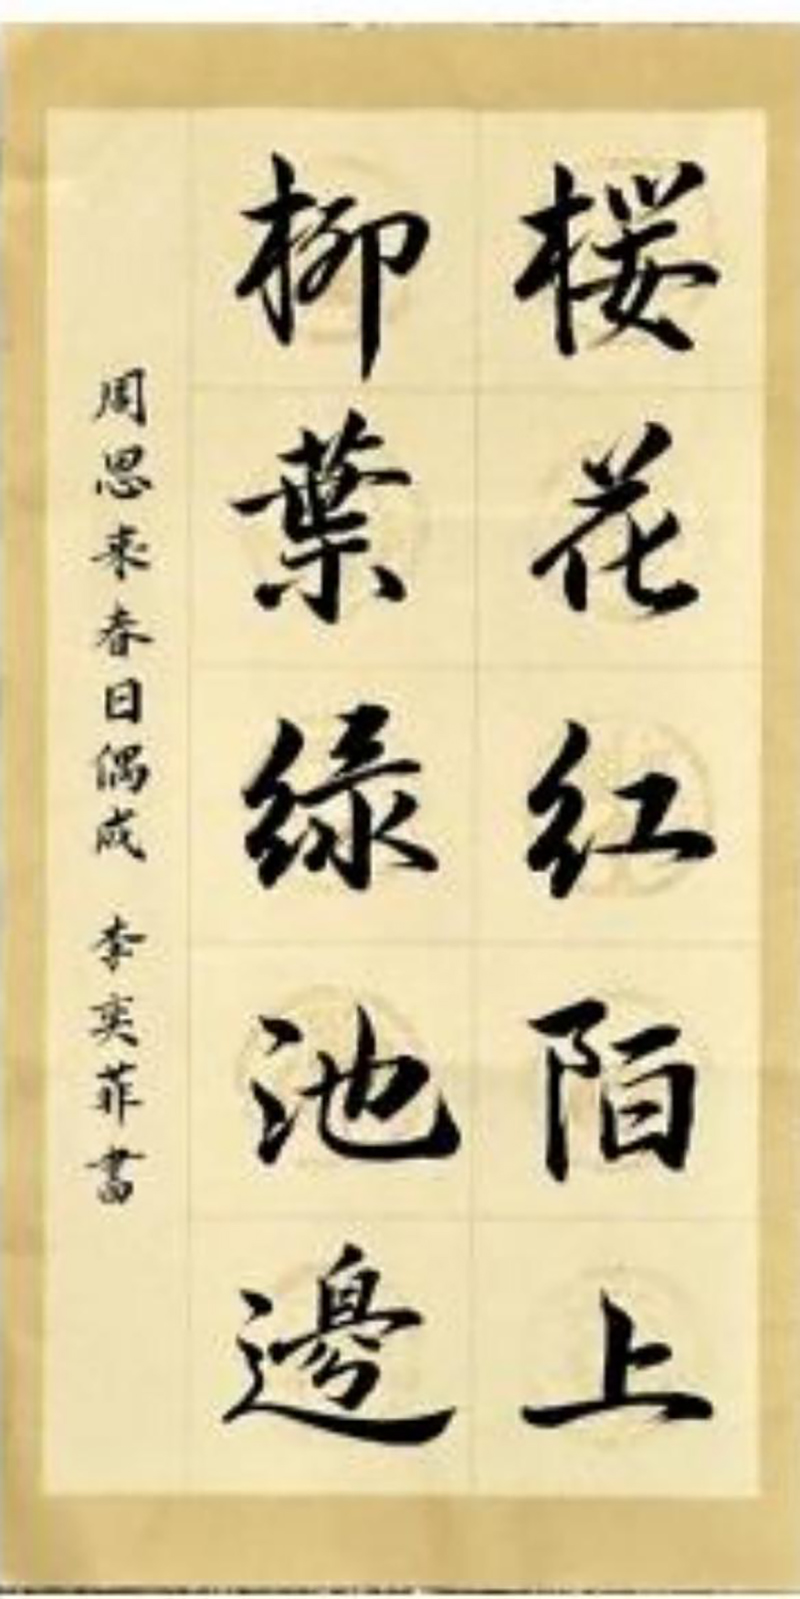 桜花红陌上
柳葉绿池邊
周恩来春日偶成 李奕菲書